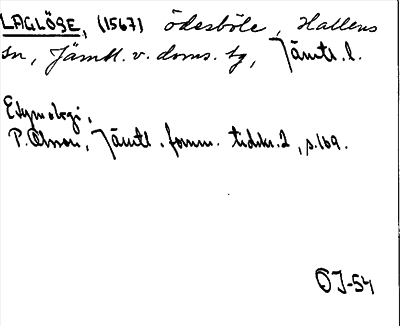 LAGLÖSE, (1567) ödesböle, Hallens
sn, Jämtl. v. doms. tg, Jämtl. l.
Etymologi,
P. Olsson, Jämtl. fornm. tidskr. 2, s. 169.
ÖJ-54